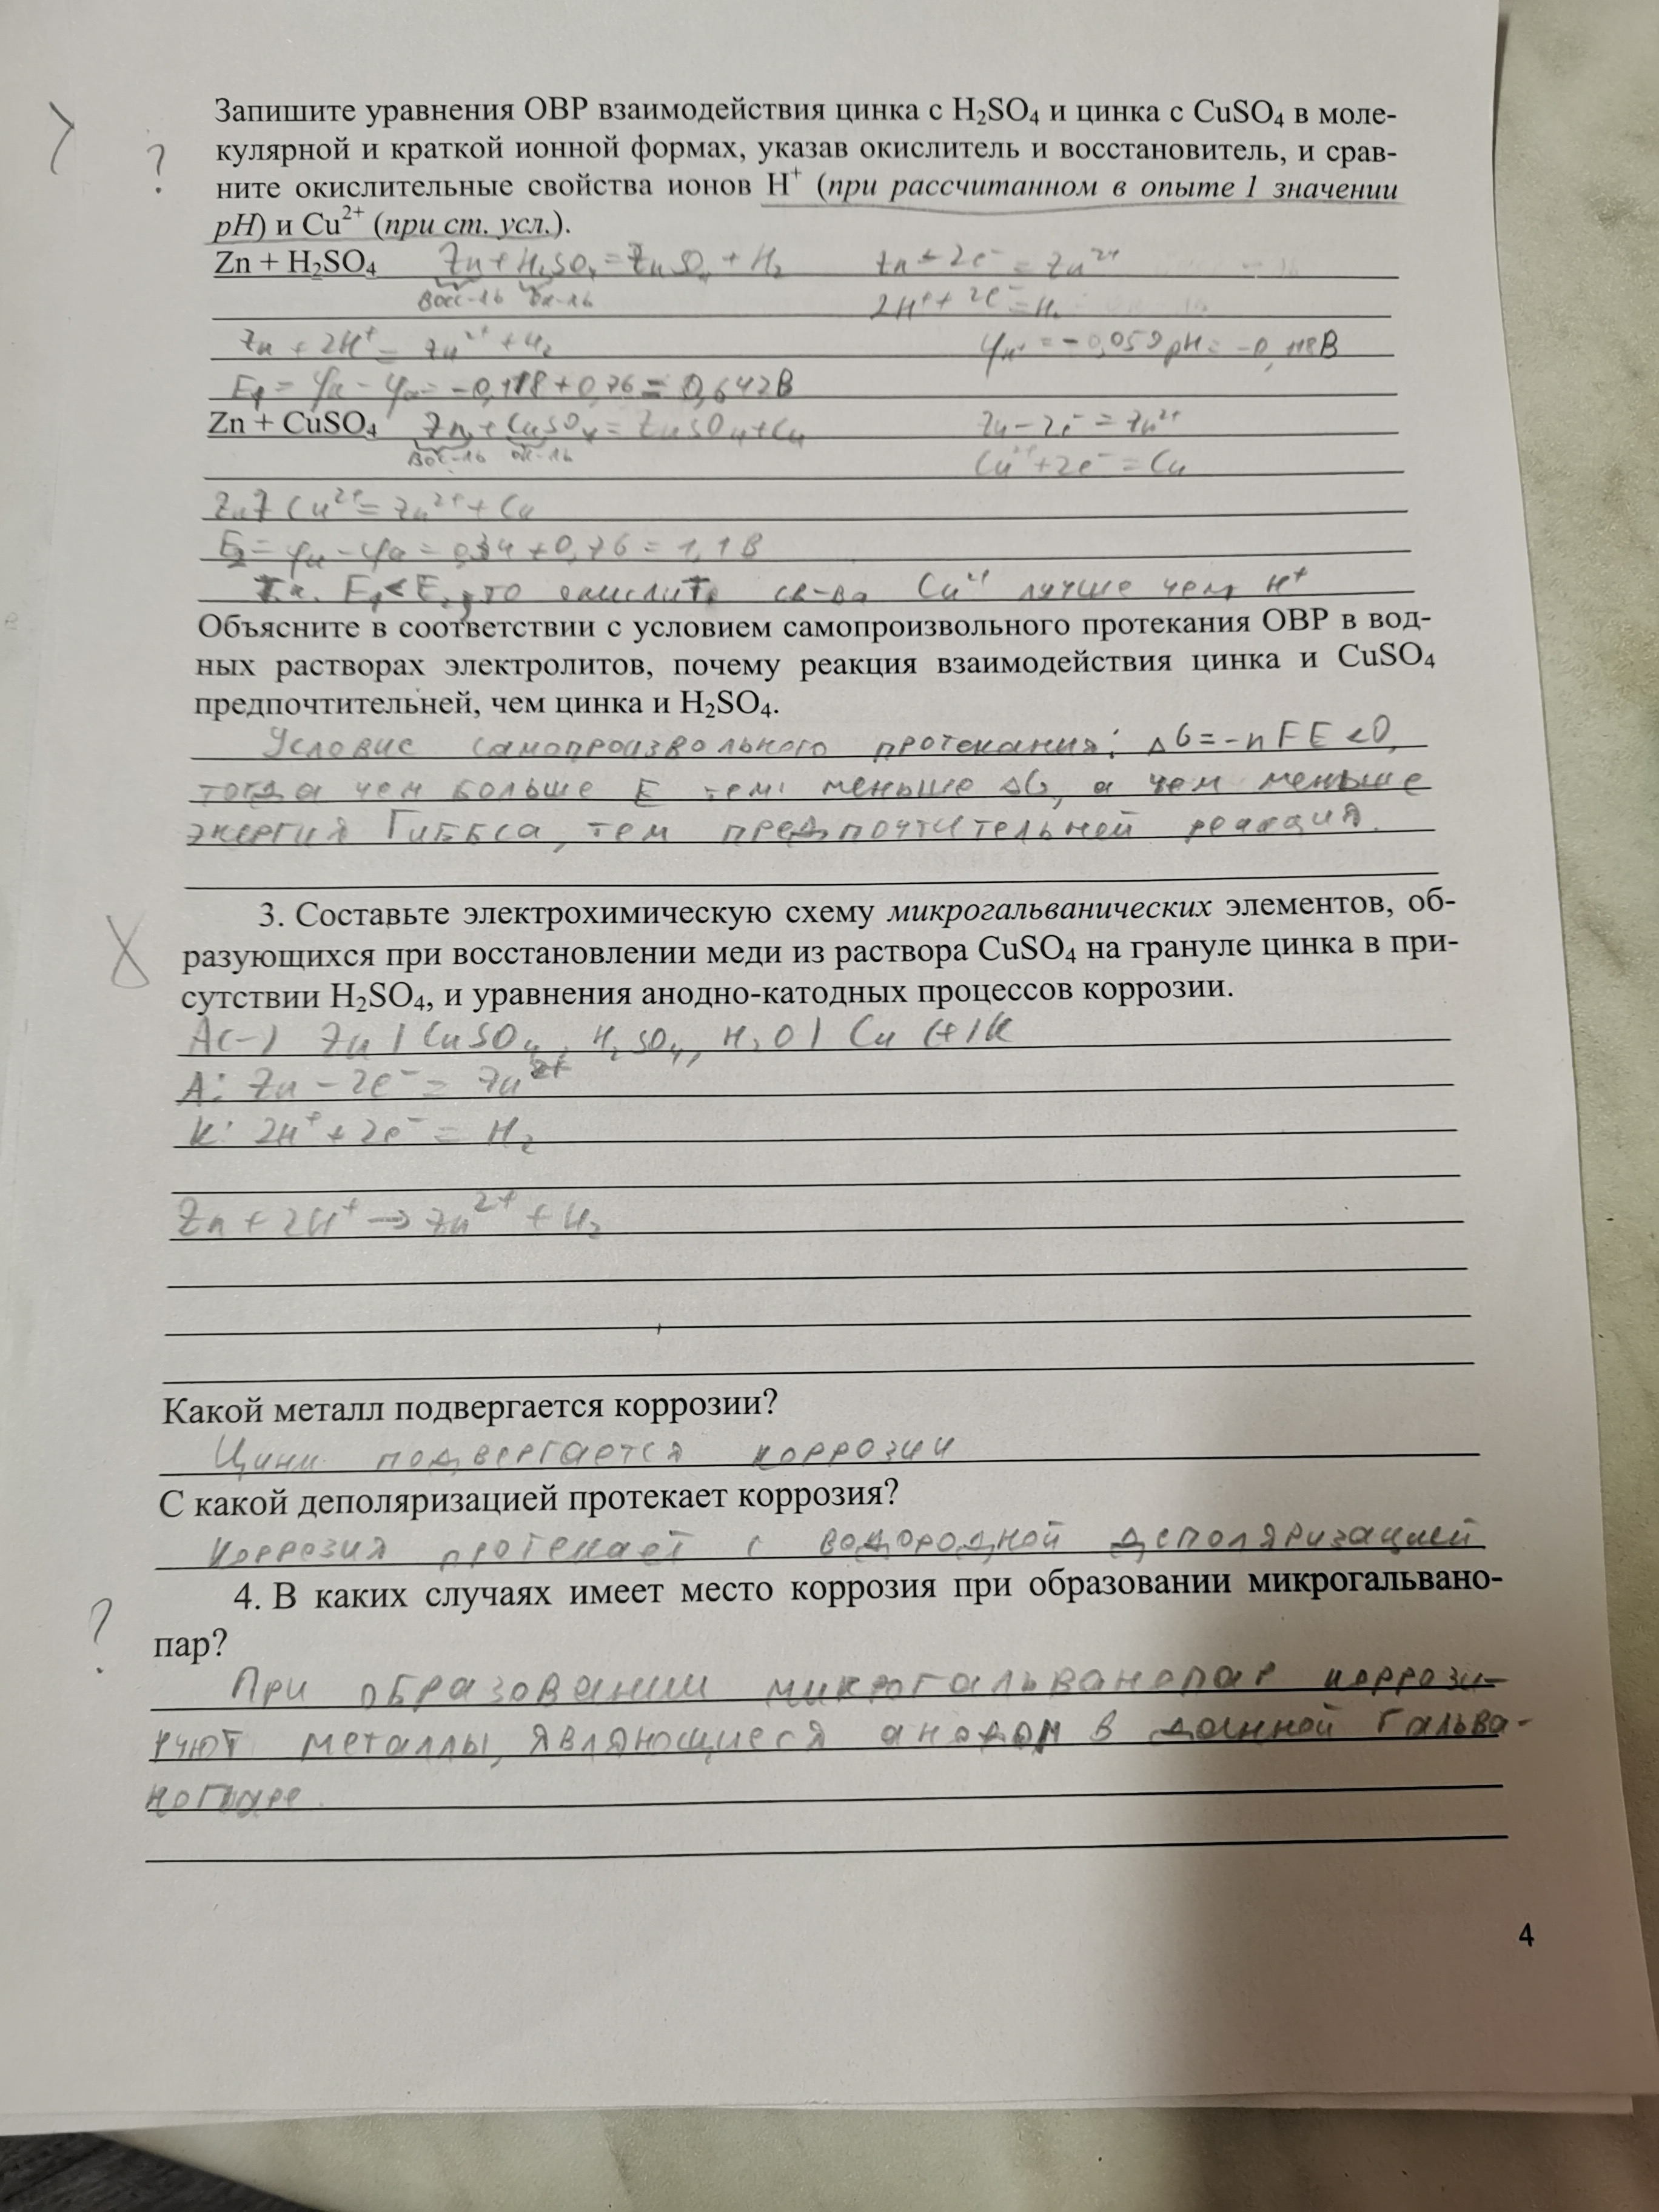 Запишите уравнения ОВР взаимодействия цинка с H₂SO₄ и цинка с CuSO₄ в моле-
? кулярной и краткой ионной формах, указав окислитель и восстановитель, и срав-
ните окислительные свойства ионов H⁺ (при рассчитанном в опыте 1 значении
pH) и Cu²⁺ (при ст. усл.).
Zn + H₂SO₄ Zn + H₂SO₄ = ZnSO₄ + H₂ Zn - 2e⁻ = Zn²⁺
восс-ль ок-ль 2H⁺ + 2e⁻ = H₂
Zn + 2H⁺ = Zn²⁺ + H₂ φH⁺ = -0,059 pH = -0,118 В
E₁ = φк - φа = -0,118 + 0,76 = 0,642 В
Zn + CuSO₄ Zn + CuSO₄ = ZnSO₄ + Cu Zn - 2e⁻ = Zn²⁺
вос-ль ок-ль Cu²⁺ + 2e⁻ = Cu
Zn + Cu²⁺ = Zn²⁺ + Cu
E₂ = φк - φа = 0,34 + 0,76 = 1,1 В
Т.к. E₁ < E₂, то окислит. св-ва Cu²⁺ лучше чем H⁺
Объясните в соответствии с условием самопроизвольного протекания ОВР в вод-
ных растворах электролитов, почему реакция взаимодействия цинка и CuSO₄
предпочтительней, чем цинка и H₂SO₄.
Условие самопроизвольного протекания: ΔG = -nFE < 0,
тогда чем больше E тем меньше ΔG, а чем меньше
энергия Гиббса, тем предпочтительней реакция.
3. Составьте электрохимическую схему микрогальванических элементов, об-
разующихся при восстановлении меди из раствора CuSO₄ на грануле цинка в при-
сутствии H₂SO₄, и уравнения анодно-катодных процессов коррозии.
A(-) Zn | CuSO₄, H₂SO₄, H₂O | Cu (+)K
A: Zn - 2e⁻ = Zn²⁺
K: 2H⁺ + 2e⁻ = H₂
Zn + 2H⁺ → Zn²⁺ + H₂
Какой металл подвергается коррозии?
Цинк подвергается коррозии
С какой деполяризацией протекает коррозия?
Коррозия протекает с водородной деполяризацией
4. В каких случаях имеет место коррозия при образовании микрогальвано-
? пар?
При образовании микрогальванопар коррози-
руют металлы, являющиеся анодом в данной гальва-
нопаре.
4